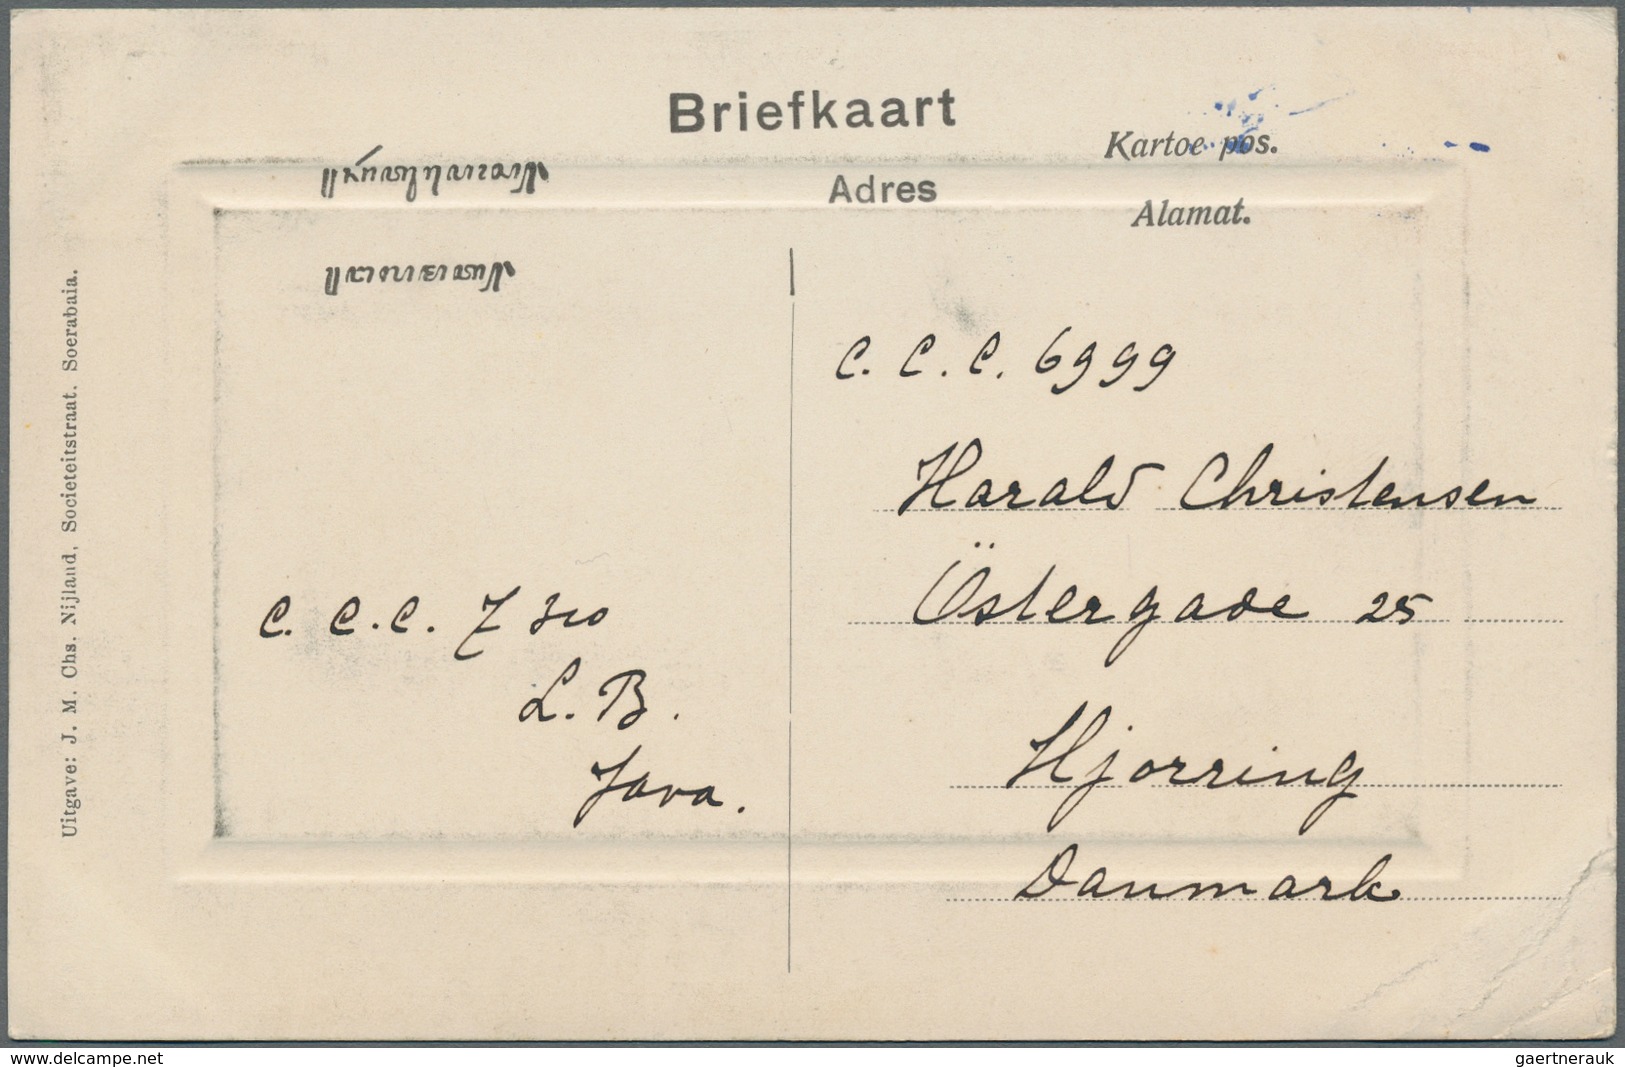 Briefkaart
Kartoe pos.
Adres
Alamat.
Uitgave: J. M. Chs. Nijland, Societeitstraat. Soerabaia.
C. C. C. 6999
Harald Christensen
Östergade 25
Hjorring
Danmark
C. C. C. 7310
L. B.
Java.
www.delcampe.net
gaertnerauk